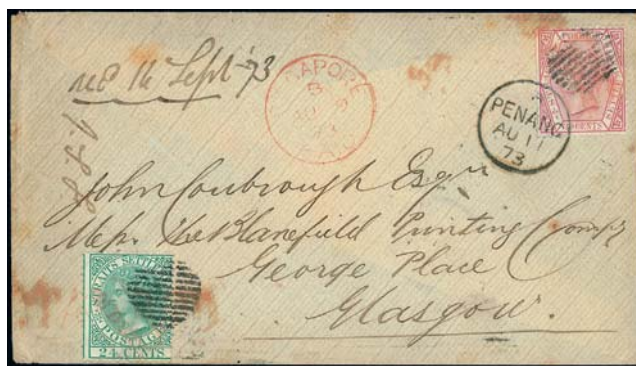 rec 16 Sept - 73
GAPORE
B
AU
PENANG
AU 11
73
John Coubrough Esqre
Messrs. The Blanefield Printing Compy
George Place
Glasgow.
STRAITS SETTLE
POSTAGE
24 CENTS
CENTS